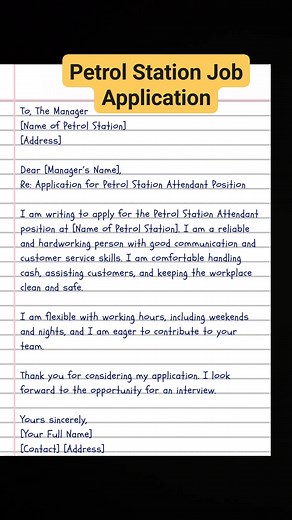 Petrol Station Job
Application
To, The Manager
[Name of Petrol Station]
[Address]
Dear [Manager's Name],
Re: Application for Petrol Station Attendant Position
I am writing to apply for the Petrol Station Attendant
position at [Name of Petrol Station]. I am a reliable
and hardworking person with good communication and
customer service skills. I am comfortable handling
cash, assisting customers, and keeping the workplace
clean and safe.
I am flexible with working hours, including weekends
and nights, and I am eager to contribute to your
team.
Thank you for considering my application. I look
forward to the opportunity for an interview.
Yours sincerely,
[Your Full Name]
[Contact] [Address]